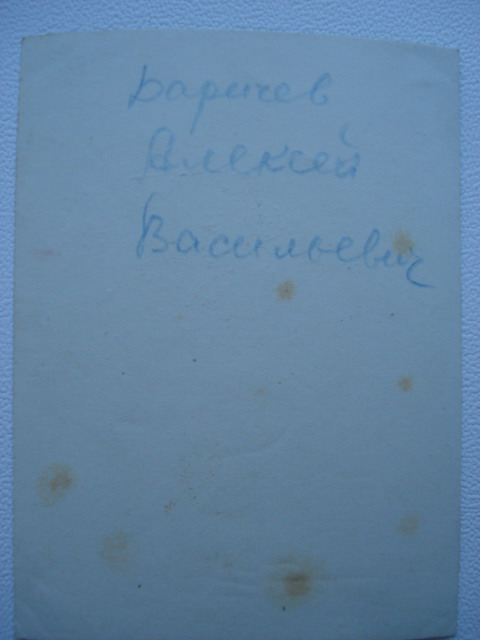 Баричев
Алексей
Васильевич